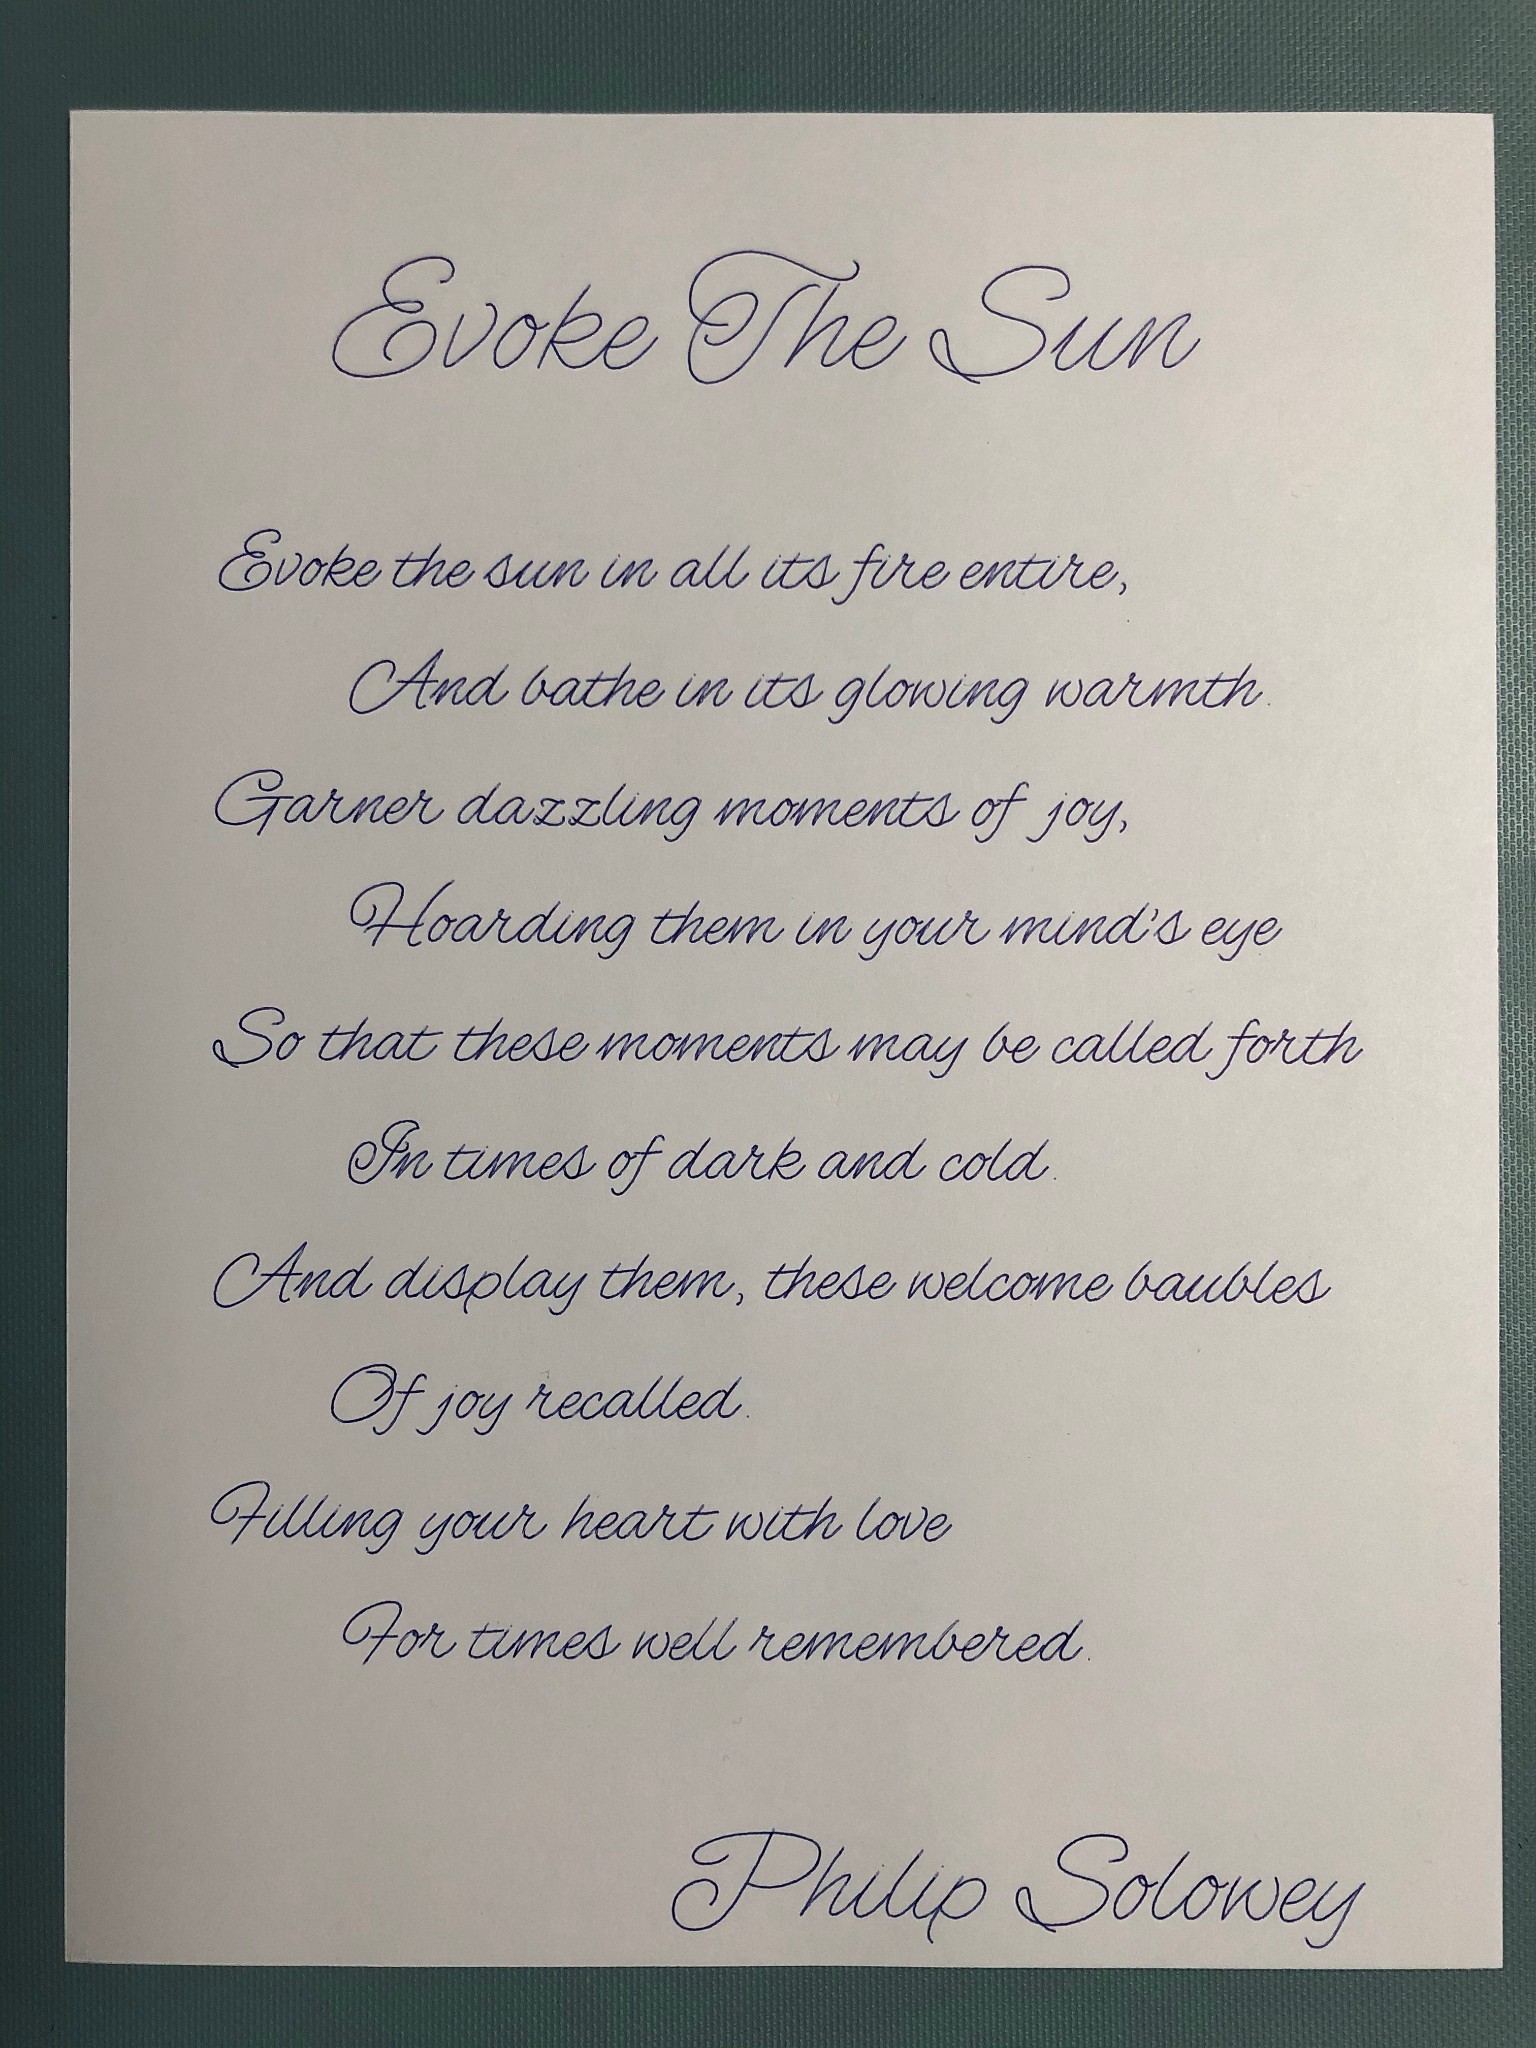 Evoke The Sun
Evoke the sun in all its fire entire,
And bathe in its glowing warmth.
Garner dazzling moments of joy,
Hoarding them in your mind's eye
So that these moments may be called forth
In times of dark and cold.
And display them, these welcome baubles
Of joy recalled.
Filling your heart with love
For times well remembered.
Philip Solowey